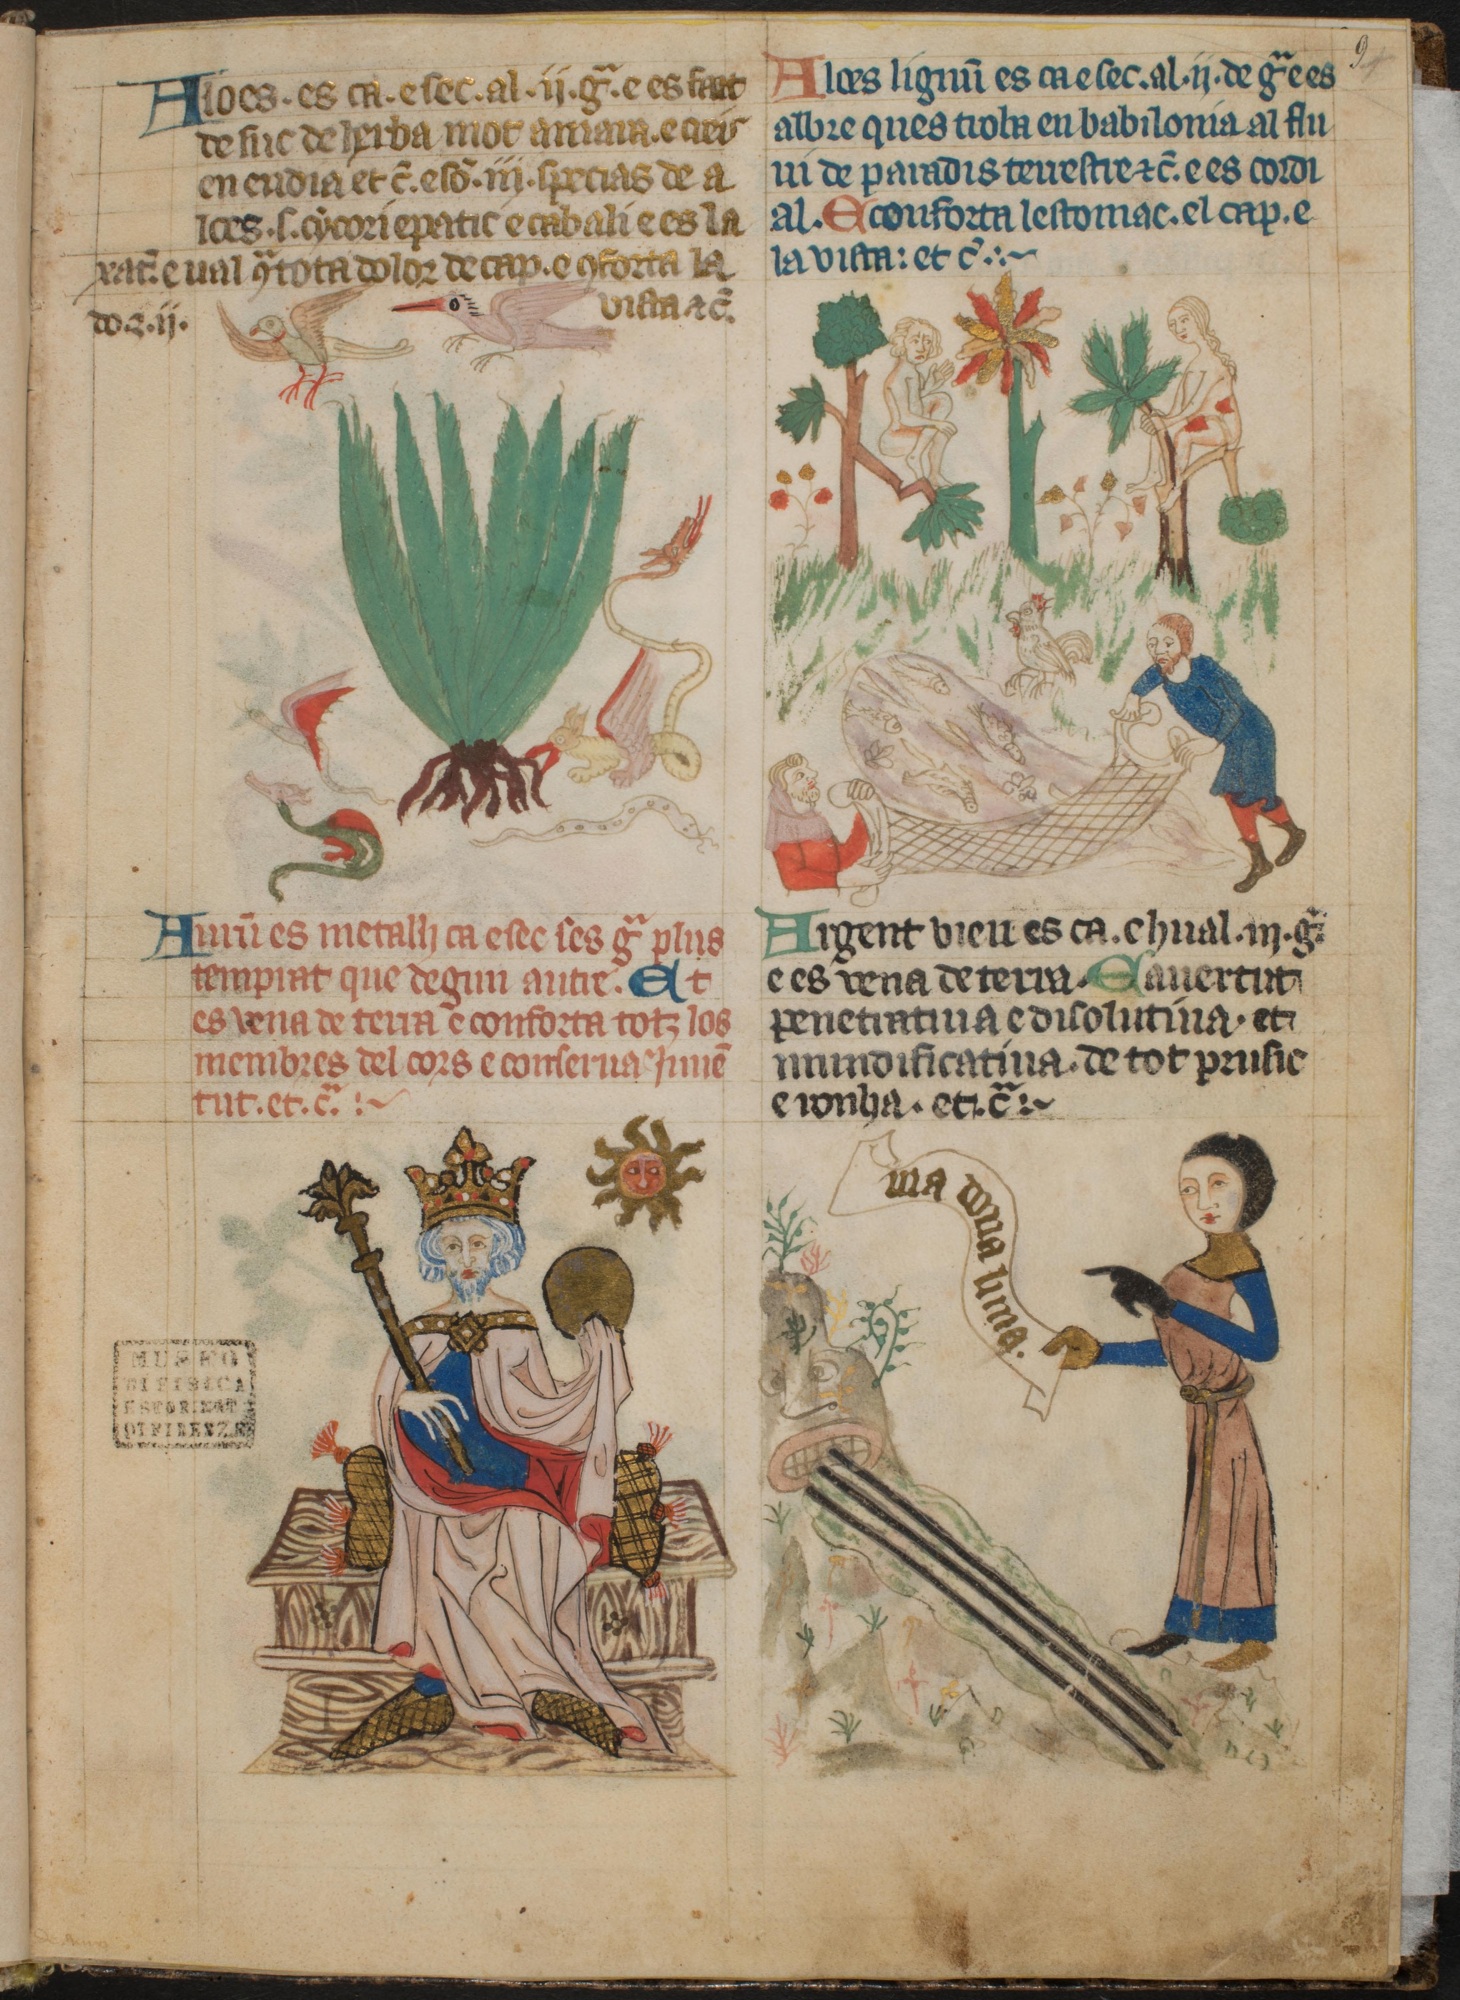 Aloes. es ca. e sec. al. ij. gͣ. e es fait
de suc de herba mot amara. e creis
en endia et c̄. e so. iij. specias de a
loes. s. cycotri epatic e cabali e es la
xat. e ual q̄ tota dolor de cap. e cōforta la
vista ⁊ c̄.
do. ʒ. ij.
Aloes lignū es ca e sec. al. ij. de gͣ e es
albre ques troba en babilonia al flu
ui de paradis terrestre ⁊ c̄. e es cordi
al. E conforta lestomac. el cap. e
la vista: et c̄
Aurū es metalh ca e sec ses gͣ plus
temprat que degun autre. Et
es vena de terra e conforta totz los
membres del cors e conserua Juuē
tut. et. c̄.
Argent vieu es ca. e hual. iij. gͣ
e es vena de terra. E a uertut
penetratiua e disolutiua. et
mundificatiua. de tot prusic
e ronha. et. c̄
uia dona lima.
MUSEO
DI FISICA
E STOR. NAT.
DI FIRENZE
9